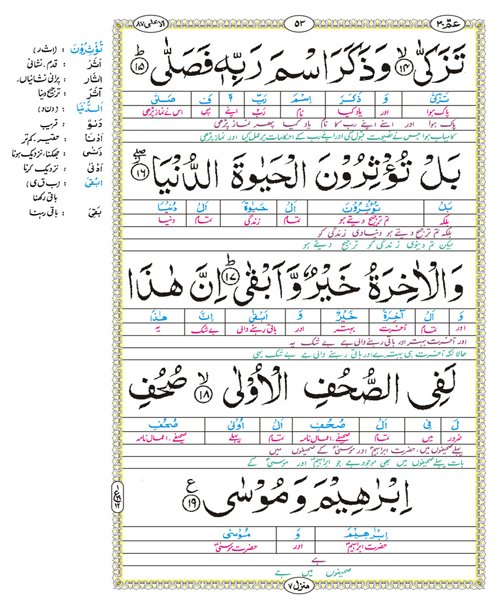 عمّ ٣٠
٥٣
الاعلی ٨٧
تَزَكّٰىۙ ﴿١٤﴾ وَذَكَرَ اسْمَ رَبِّهٖ فَصَلّٰىؕ ﴿١٥﴾
تَزَكّٰى وَ ذَكَرَ اِسْمَ رَبِّ هٖ فَ صَلّٰى
پاک ہوا اور یاد کیا نام رب اپنے پس اس نے نماز پڑھی
پاک ہوا اور یاد کیا نام اپنے رب کا پھر نماز پڑھی
بَلْ تُؤْثِرُوْنَ الْحَيٰوةَ الدُّنْيَاؗۖ ﴿١٦﴾
بَلْ تُؤْثِرُوْنَ اَلْ حَيٰوةَ اَلْ دُنْيَا
بلکہ تم ترجیح دیتے ہو تمام زندگی تمام دنیا
بلکہ تم ترجیح دیتے ہو دنیاوی زندگی کو
لیکن تم دنیوی زندگی کو ترجیح دیتے ہو
وَالْاٰخِرَةُ خَيْرٌ وَّاَبْقٰىؕ ﴿١٧﴾ اِنَّ هٰذَا
وَ اَلْ اٰخِرَةُ خَيْرٌ وَ اَبْقٰى اِنَّ هٰذَا
اور تمام آخرت بہتر اور باقی رہنے والی بے شک یہ
اور آخرت بہتر اور باقی رہنے والی ہے بے شک یہ
حالانکہ آخرت ہی بہتر ہے اور باقی رہنے والی ہے بے شک یہی
لَفِى الصُّحُفِ الْاُوْلٰىۙ ﴿١٨﴾ صُحُفِ
لَ فِى اَلْ صُحُفِ اَلْ اُوْلٰى صُحُفِ
ضرور میں تمام صحیفے، اعمال نامہ تمام پہلے صحیفے، اعمال نامہ
پہلے صحیفوں میں، حضرت ابراہیمؑ اور موسٰیؑ کے صحیفوں میں
بات پہلے صحیفوں میں بھی موجود ہے جو ابراہیمؑ اور موسٰیؑ کے
اِبْرٰهِيْمَ وَمُوْسٰى ﴿١٩﴾ ع
اِبْرٰهِيْمَ وَ مُوْسٰى
حضرت ابراہیمؑ اور حضرت موسٰیؑ
ہے
صحیفوں میں ہے
منزل ٧
تُؤْثِرُوْنَ : (اث ر)
اَثَرَ : قدم، نشانی
اٰثَار : پرانی نشانیاں،
اٰثَرَ : ترجیح دینا
اَلدُّنْيَا : (دن و)
دُنُوّ : قریب
اَدْنٰى : حقیر، کم تر
دَنٰى : جھکنا، نزدیک ہونا
اَدْنٰى : نزدیک کرنا
اَبْقٰى : (ب ق ی)
باقی رکھنا
بَقِىَ : باقی رہنا